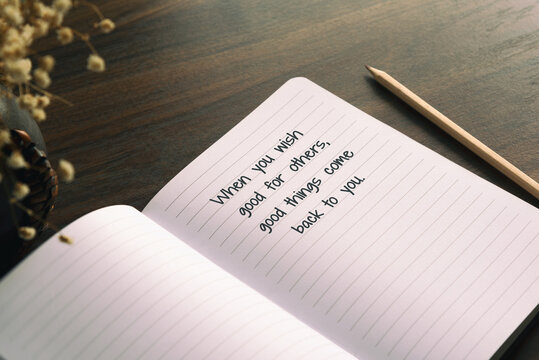 When you wish
good for others,
good things come
back to you.